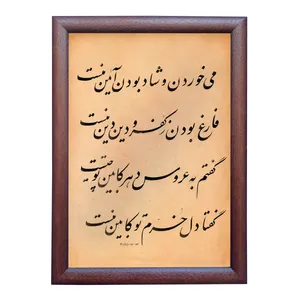 می خوردن و شاد بودن آیین منست
فارغ بودن ز کفر و دین دین منست
گفتم به عروس دهر کابین تو چیست
گفتا دل خرم تو کابین منست